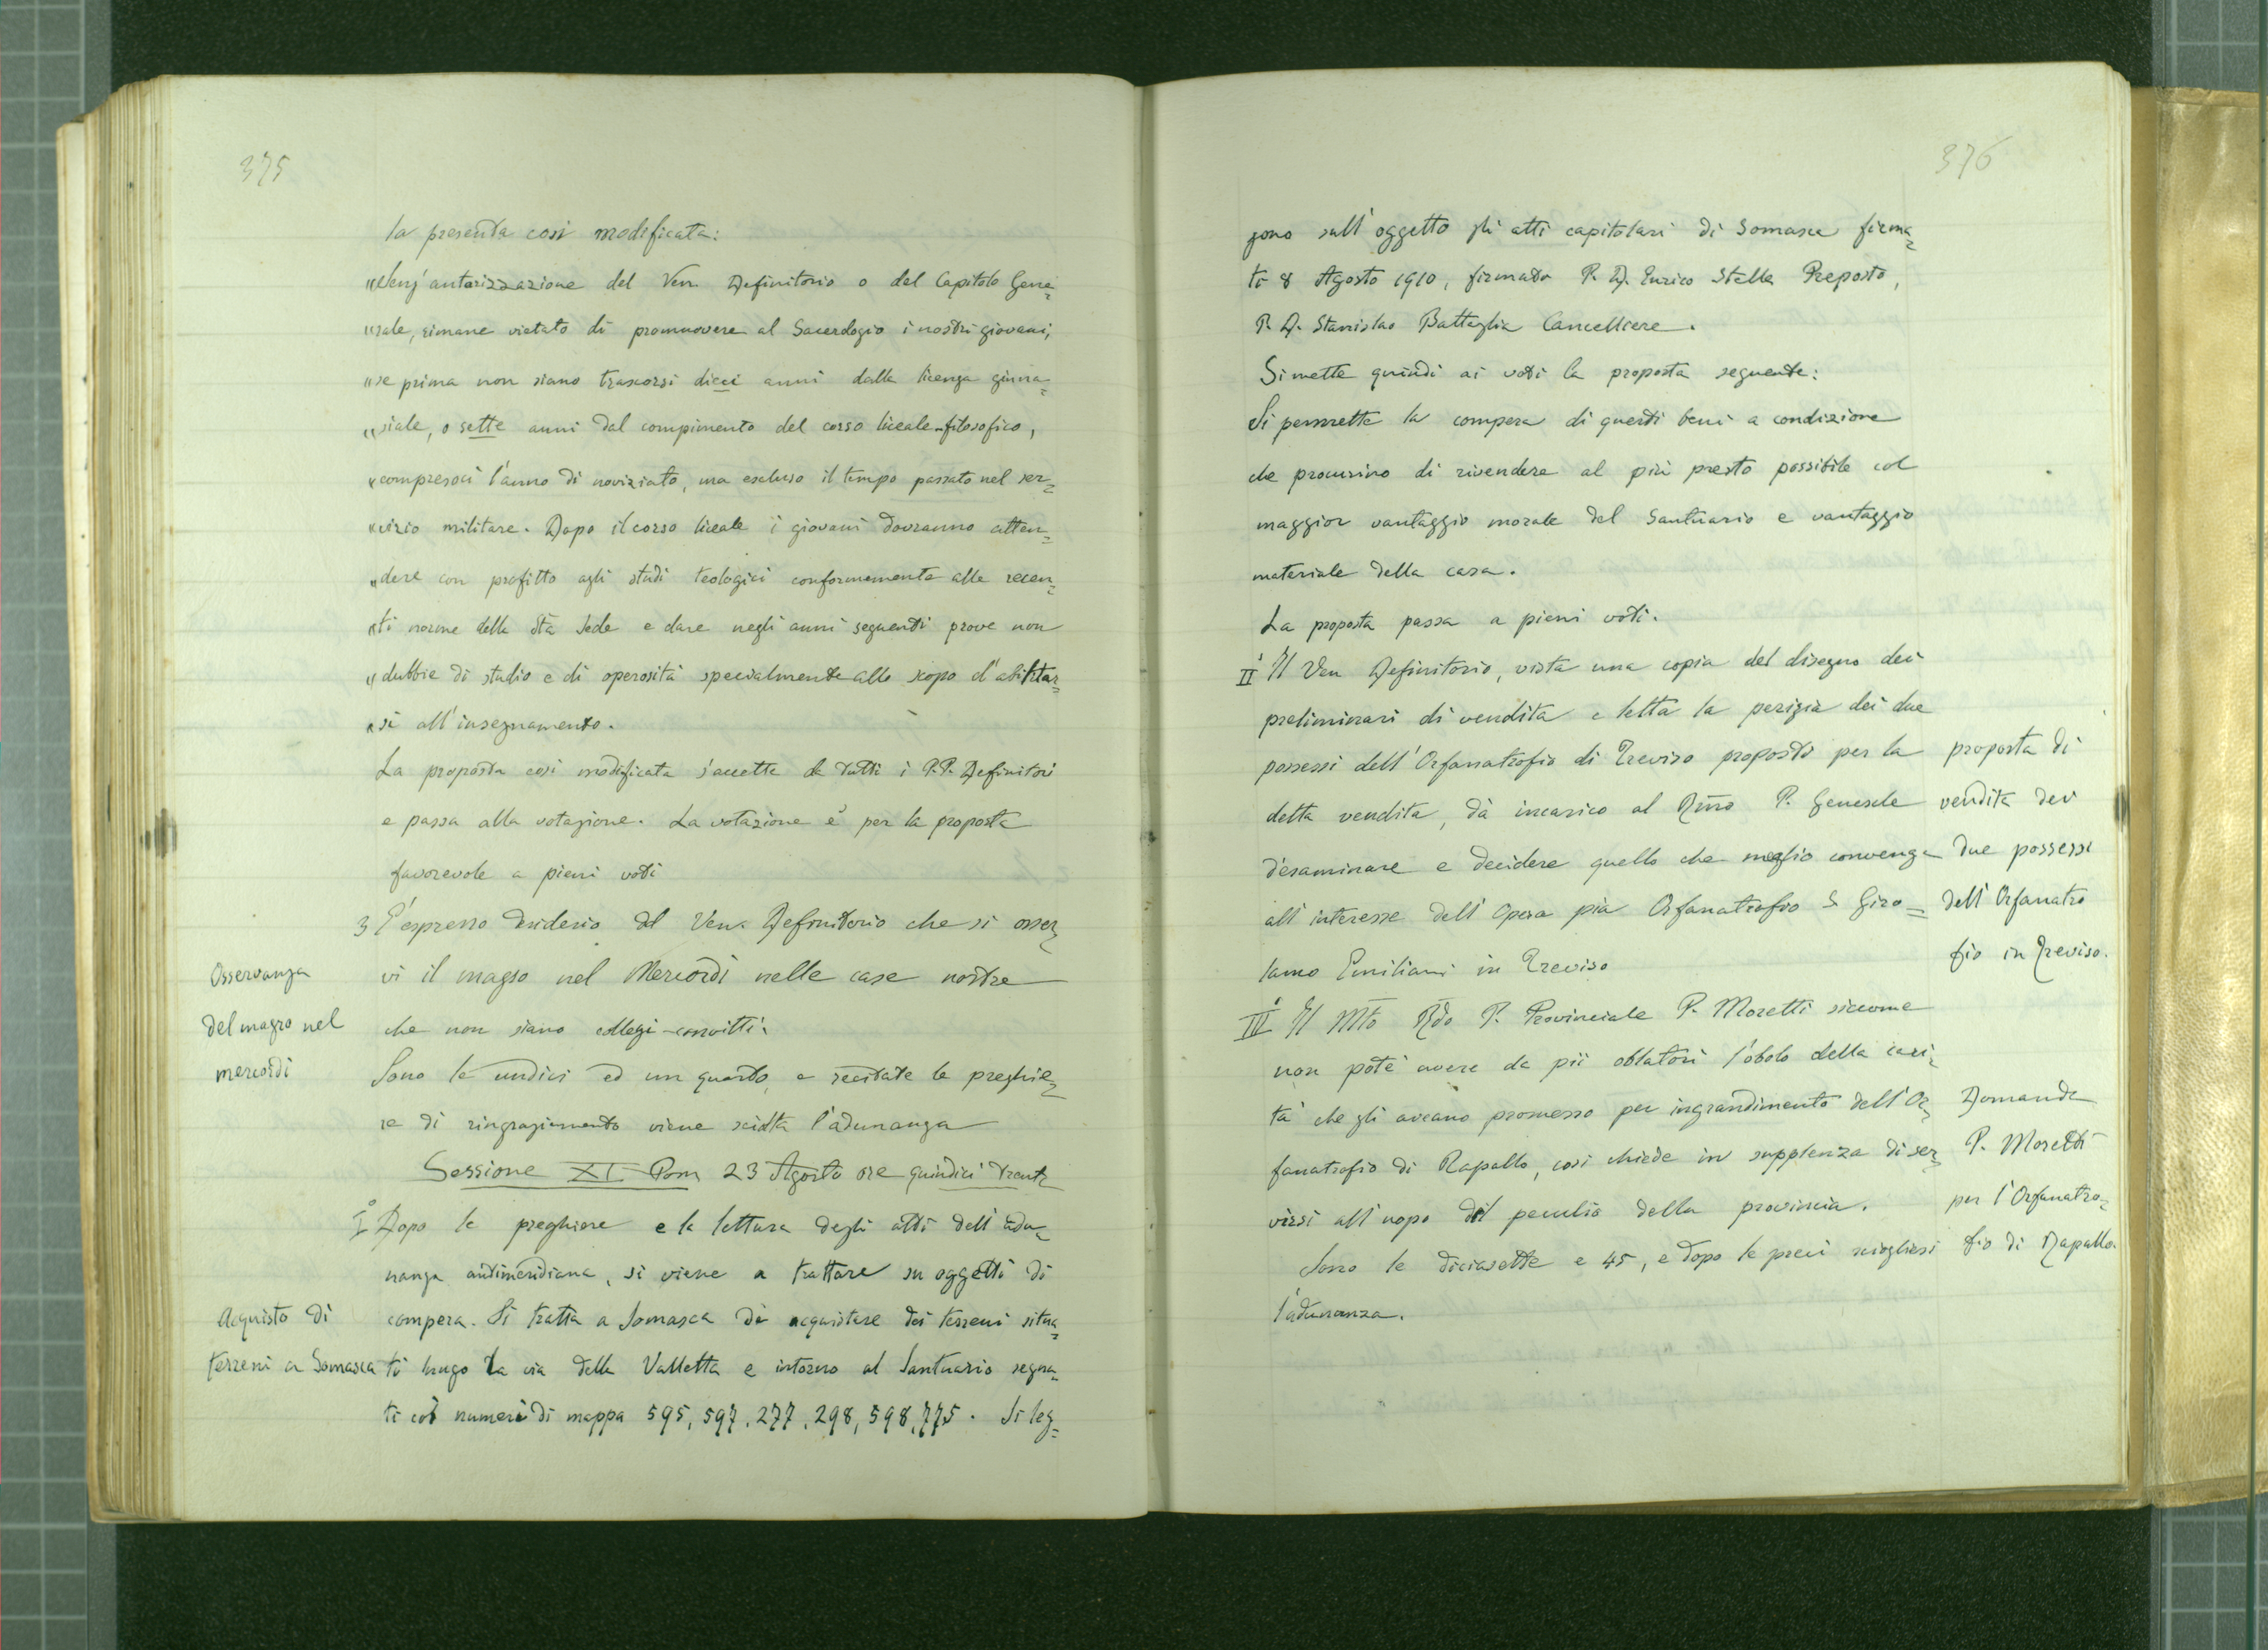 375
la presenta così modificata:
"Senz'autorizzazione del Ven. Definitorio o del Capitolo Gene=
"rale, rimane vietato di promuovere al Sacerdozio i nostri giovani,
"se prima non siano trascorsi dieci anni dalla licenza ginna=
"siale, o sette anni dal compimento del corso liceale-filosofico,
"compresoci l'anno di noviziato, ma escluso il tempo passato nel ser=
"vizio militare. Dopo il corso liceale i giovani dovranno atten=
"dere con profitto agli studi teologici conformemente alle recen=
"ti norme della Sta Sede e dare negli anni seguenti prove non
"dubbie di studio e di operosità specialmente allo scopo d'abilitar=
"si all'insegnamento.
La proposta così modificata s'accetta da tutti i P.P. Definitori
e passa alla votazione. La votazione è per la proposta
favorevole a pieni voti
3 È espresso desiderio del Ven. Definitorio che si osser=
vi il magro nel Mercordì nelle case nostre
che non siano collegi-convitti.
Osservanza
del magro nel
mercordì
Sono le undici ed un quarto, e recitate le preghie=
re di ringraziamento viene sciolta l'adunanza
Sessione XI Pom 23 Agosto ore quindici trenta
I° Dopo le preghiere e la lettura degli atti dell'adu=
nanza antimeridiana, si viene a trattare su oggetti di
compera. Si tratta a Somasca di acquistare dei terreni situa=
ti lungo la via della Valletta e intorno al Santuario segna=
ti coi numeri di mappa 595, 597, 277, 298, 598, 775. Si leg=
Acquisto di
terreni a Somasca
376
gono sull'oggetto gli atti capitolari di Somasca firma=
ti 8 Agosto 1910, firmato P. D. Enrico Stella Preposto,
P. D. Stanislao Battaglia Cancelliere.
Si mette quindi ai voti la proposta seguente:
Si permette la compera di questi beni a condizione
che procurino di rivendere al più presto possibile col
maggior vantaggio morale del Santuario e vantaggio
materiale della casa.
La proposta passa a pieni voti.
II° Il Ven Definitorio, vista una copia del disegno dei
preliminari di vendita e letta la perizia dei due
possessi dell'Orfanatrofio di Treviso proposti per la
detta vendita, dà incarico al Rmo P. Generale
d'esaminare e decidere quello che meglio convenga
all'interesse dell'Opera pia Orfanatrofio S Giro=
lamo Emiliani in Treviso
proposta di
vendita dei
due possessi
dell'Orfanatro
fio in Treviso.
III° Il Mto Rdo P. Provinciale P. Moretti siccome
non potè avere da pii oblatori l'obolo della cari=
tà che gli aveano promesso per ingrandimento dell'Or=
fanatrofio di Rapallo, così chiede in supplenza di ser=
virsi all'uopo del peculio della provincia.
Domanda
P. Moretti
per l'Orfanatro=
fio di Rapallo.
Sono le diciasette e 45, e dopo le preci sciogliesi
l'adunanza.